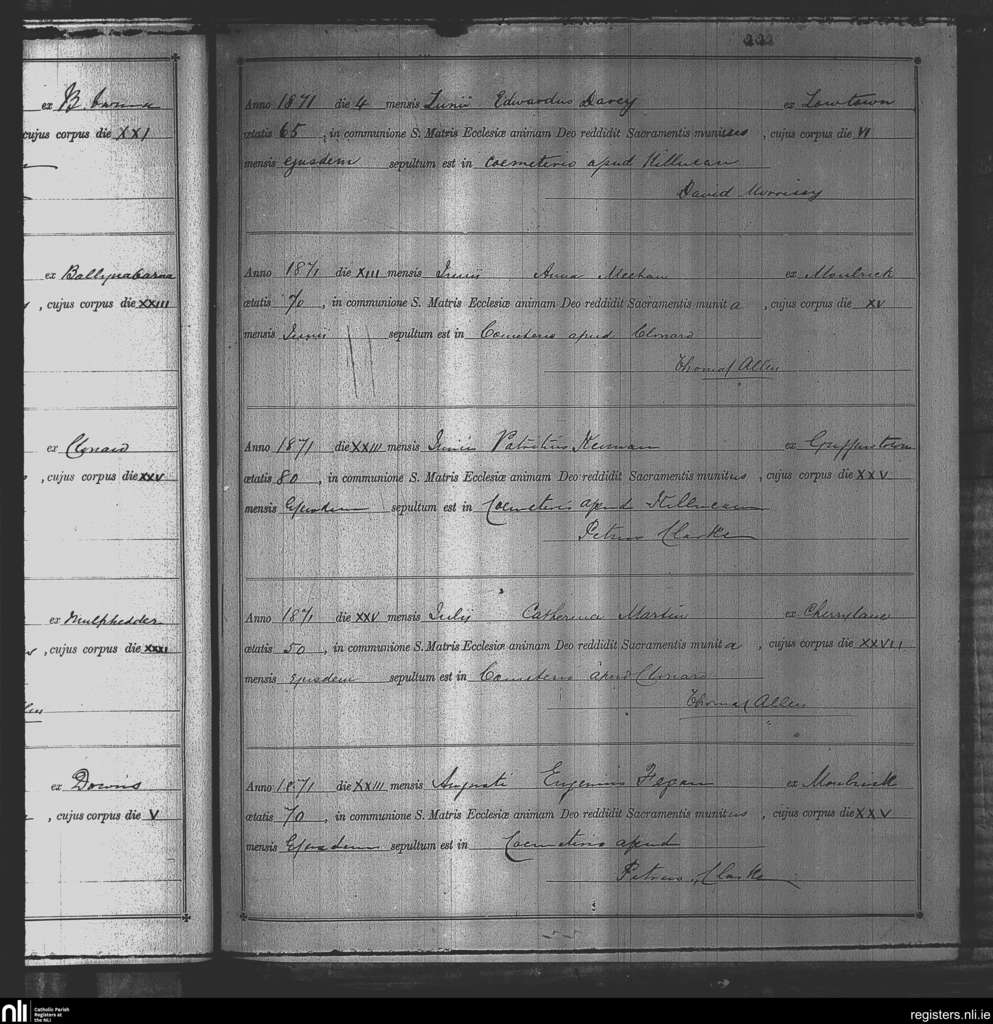 ex B.
cujus corpus die XXI
ex Ballynabarna
, cujus corpus die XXIII
ex Clonard
, cujus corpus die XXV
ex Mulphedder
, cujus corpus die XXXI
ex Downs
, cujus corpus die V
222
Anno 1871 die 4 mensis Junii Edwardus Darcy ex Lowtown
ætatis 65 , in communione S. Matris Ecclesiæ animam Deo reddidit Sacramentis munitus , cujus corpus die VI
mensis ejusdem sepultum est in Coemeterio apud Killucan
David Morrissy
Anno 1871 die XIII mensis Junii Anna Meehan ex Moulrick
ætatis 70 , in communione S. Matris Ecclesiæ animam Deo reddidit Sacramentis munita , cujus corpus die XV
mensis Junii sepultum est in Coemeterio apud Clonard
Thomas Allen
Anno 1871 die XXIII mensis Junii Patritius Keenan ex Griffinstown
ætatis 80 , in communione S. Matris Ecclesiæ animam Deo reddidit Sacramentis munitus , cujus corpus die XXV
mensis Ejusdem sepultum est in Coemeterio apud Killucan
Petrus Clarke
Anno 1871 die XXV mensis Julij Catherina Martin ex Cherrylane
ætatis 50 , in communione S. Matris Ecclesiæ animam Deo reddidit Sacramentis munita , cujus corpus die XXVII
mensis Ejusdem sepultum est in Coemeterio apud Clonard
Thomas Allen
Anno 1871 die XXIII mensis Augusti Eugenius Fegan ex Moulrick
ætatis 70 , in communione S. Matris Ecclesiæ animam Deo reddidit Sacramentis munitus , cujus corpus die XXV
mensis Ejusdem sepultum est in Coemeterio apud
Petrus Clarke
nli Catholic Parish Registers at the NLI
registers.nli.ie